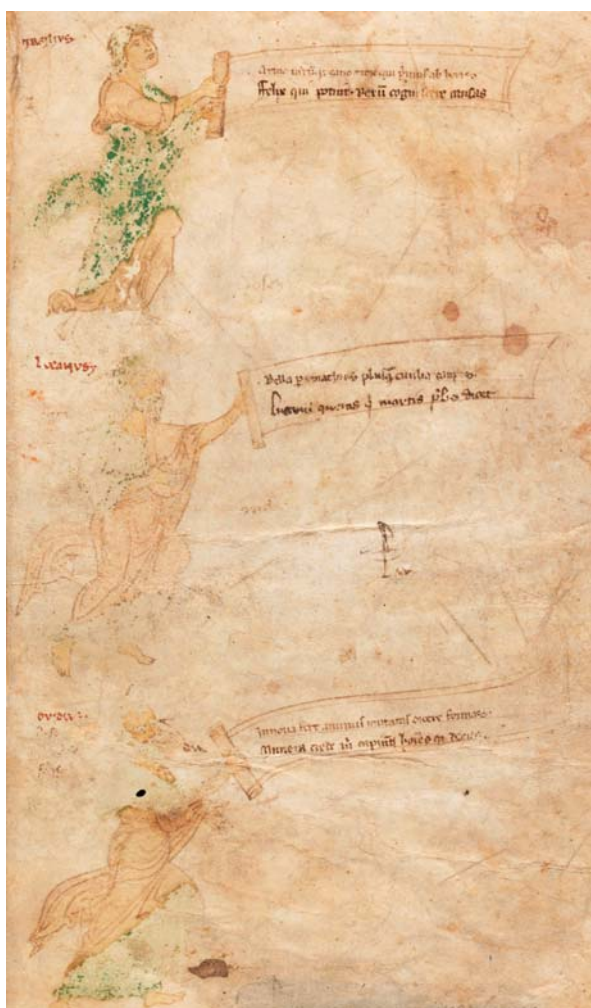 Arma uirũq; cano troie qui p̃mus ab horis
Felix qui potuit Rerũ cognoscere causas
lucanus
Bella p emathios plusq̃ ciuilia campos
Lucanũ queras q̃ martis p̃lia dicat
ovidiu
In noua fert animus mutatas dicere formas.
Munera crede m̃ capiunt hoĩes